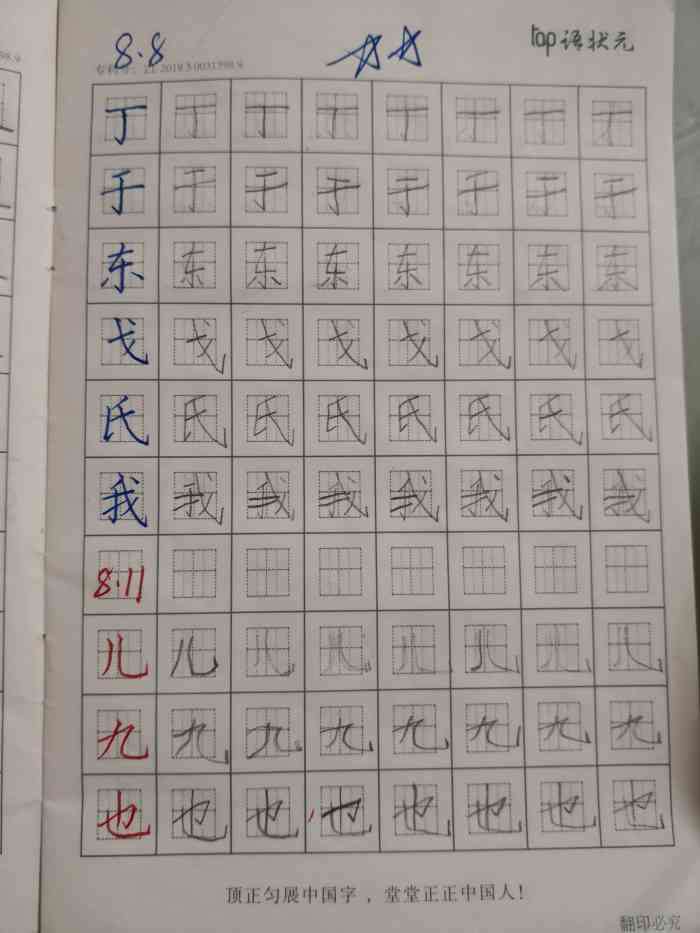 8.8 top 语状元
专利号：ZL 2019 3 0031398.9
丁 丁 丁 丁 丁 丁 丁 丁
于 于 于 于 于 于 于 于
东 东 东 东 东 东 东 东
戈 戈 戈 戈 戈 戈 戈 戈
氏 氏 氏 氏 氏 氏 氏 氏
我 我 我 我 我 我 我 我
8.11
儿 儿 儿 儿 儿 儿 儿 儿
九 九 九 九 九 九 九 九
也 也 也 也 也 也 也 也
顶正匀展中国字，堂堂正正中国人!
翻印必究